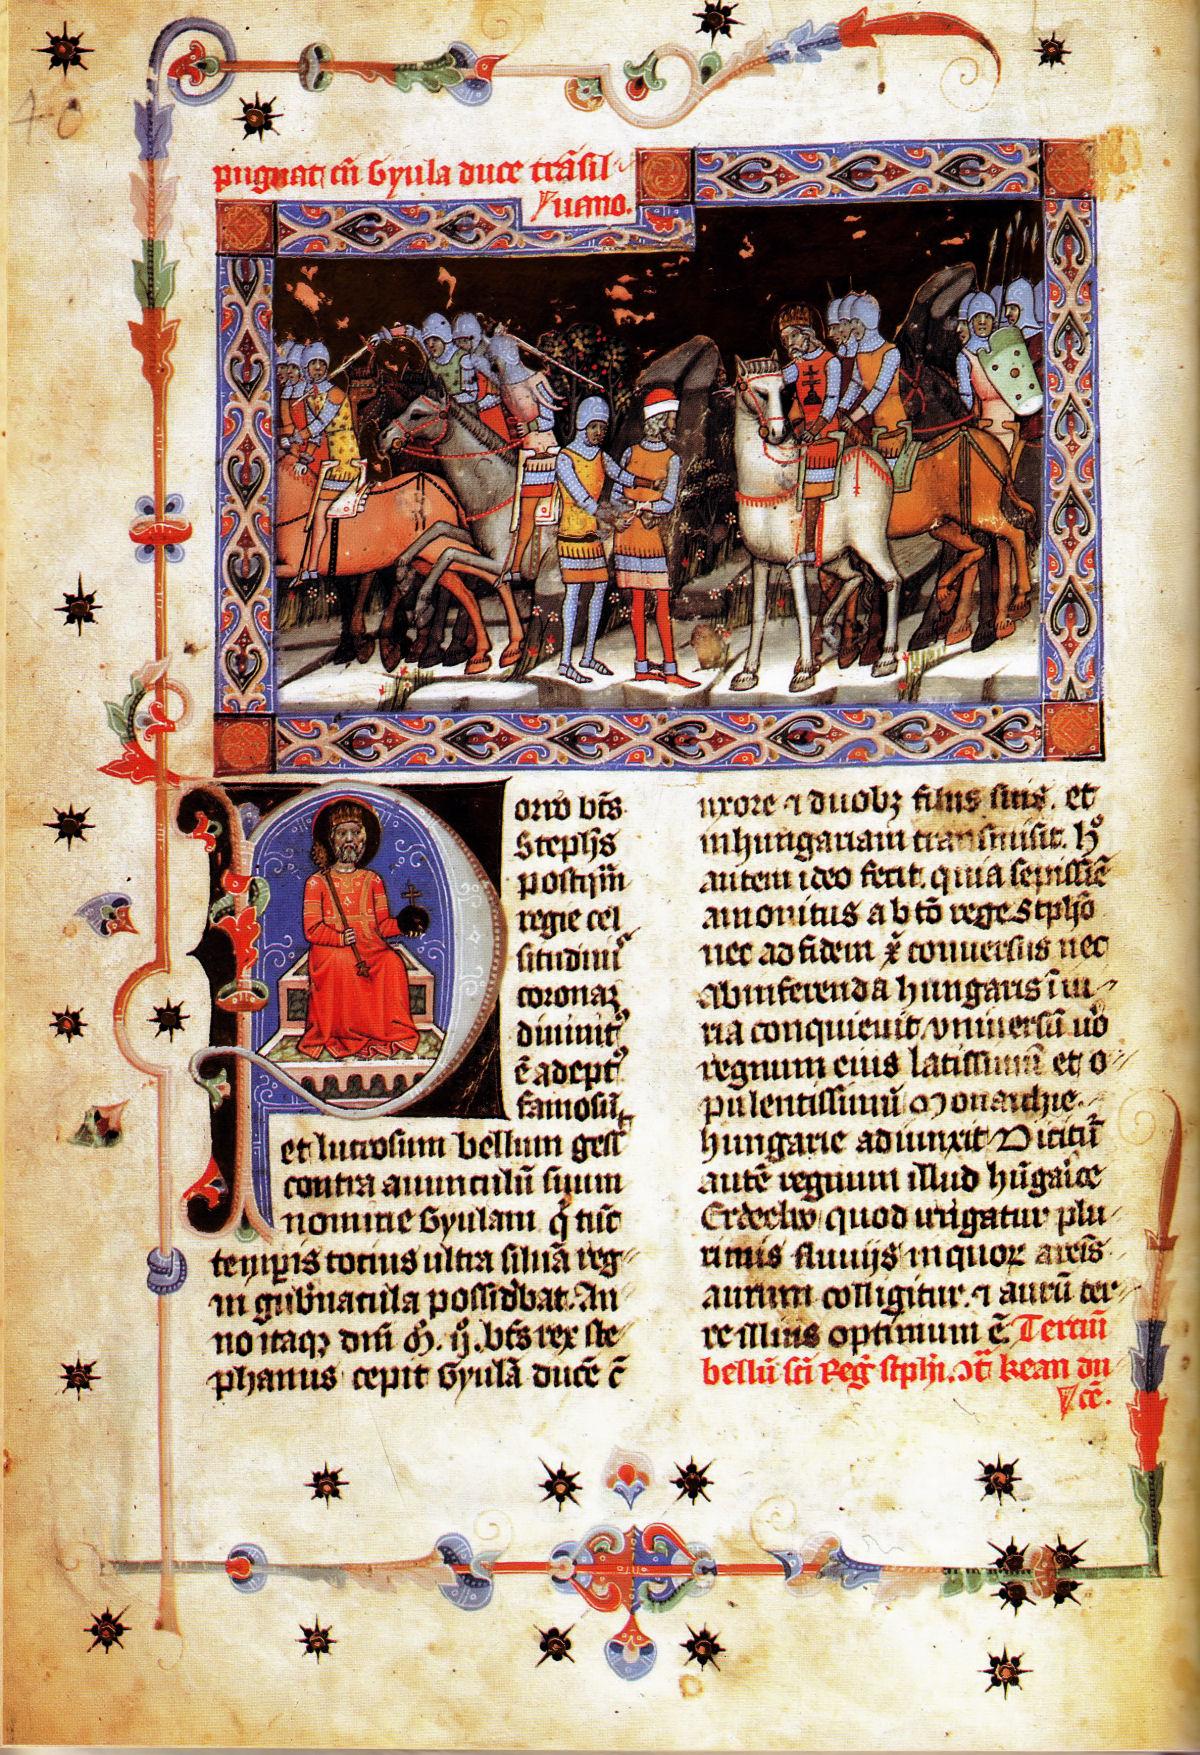 40
pugnat cū Gyula duce trāsil
uano.
orro bt̄s
Steph̄s
postqm̄
regie cel
situdinꝰ
coronaꝫ
diuinitꝰ
ē adeptꝰ
famosū
et lucrosum bellum gessꝰ
contra auunculū suum
nomine Gyulam q̇ tūc
tempꝭis totius ultra siluā reg
ni gub̄nacula possid̄bat. An
no itaqꝫ dn̄i M̊. ij̊. bt̄s rex ste
phanus cepit Gyulā ducē c̄
uxore ⁊ duobꝫ filijs suis. et
in hungariam transmisit. h̊
autem ideo fecit. quia sepissīe
amonitus a btō rege Stph̄o
nec ad fidem x̄ conuersus nec
ab inferenda hungaris iniu
ria conquieuit. vniuersū uō
regnum eius latissimū et o
pulentissimū Monarchie.
hungarie adiunxit. Dicitū
autē regnum illud hūgaīce
Erdeelw quod irrigatur plu
rimis fluuijs in quoꝝ areīs
aurum colligitur. ⁊ aurū ter
re illius optimum ē. Terciū
bellū sc̄i Reḡ stph̄i. ↄt̄ kean du
cē.